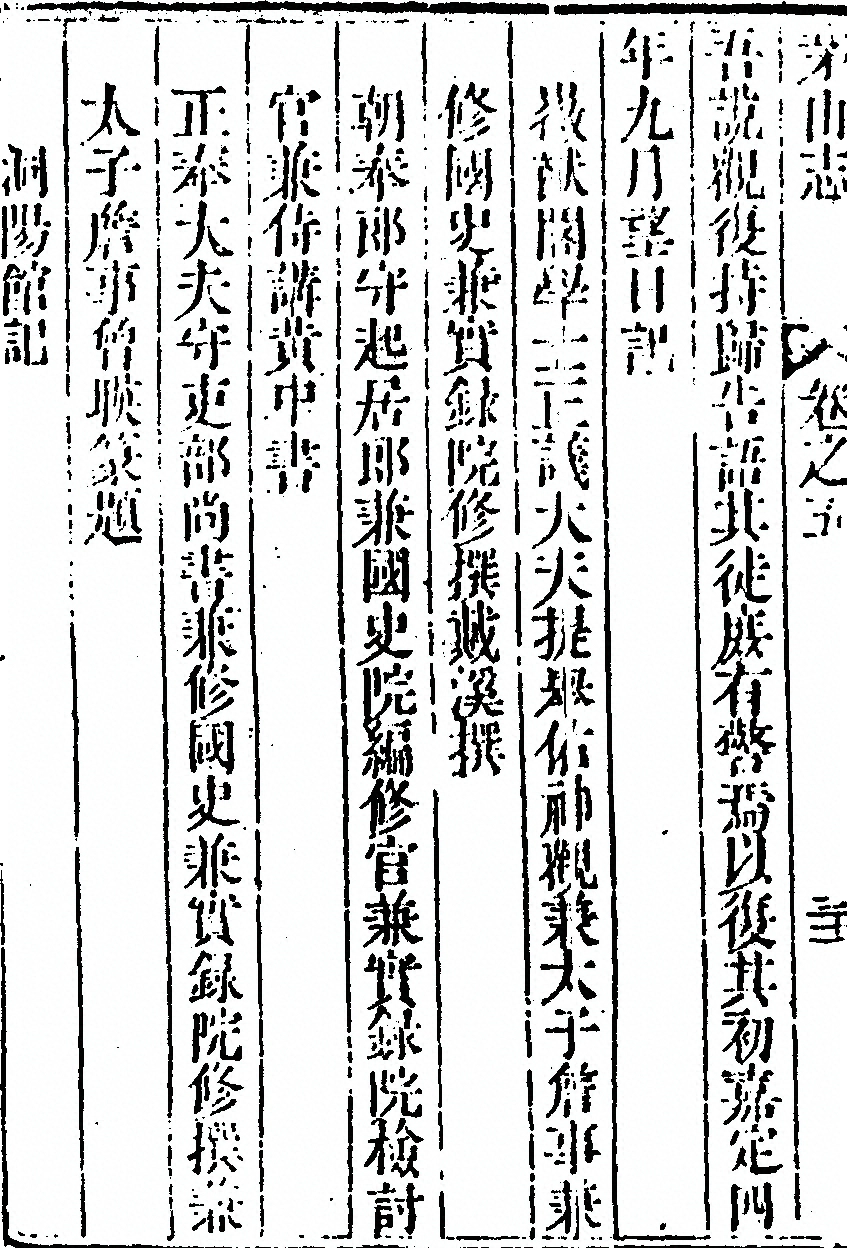 茅山志 卷之五
吾說觀復持歸告語其徒庶有警焉以復其初嘉定四
年九月望日記
徽猷閣學士正議大夫提舉佑神觀兼太子詹事兼
修國史兼實錄院修撰戴溪撰
朝奉郎守起居郎兼國史院編修官兼實錄院檢討
官兼侍講黃中書
正奉大夫守吏部尚書兼修國史兼實錄院修撰兼
太子詹事曾暎篆題
洞陽館記